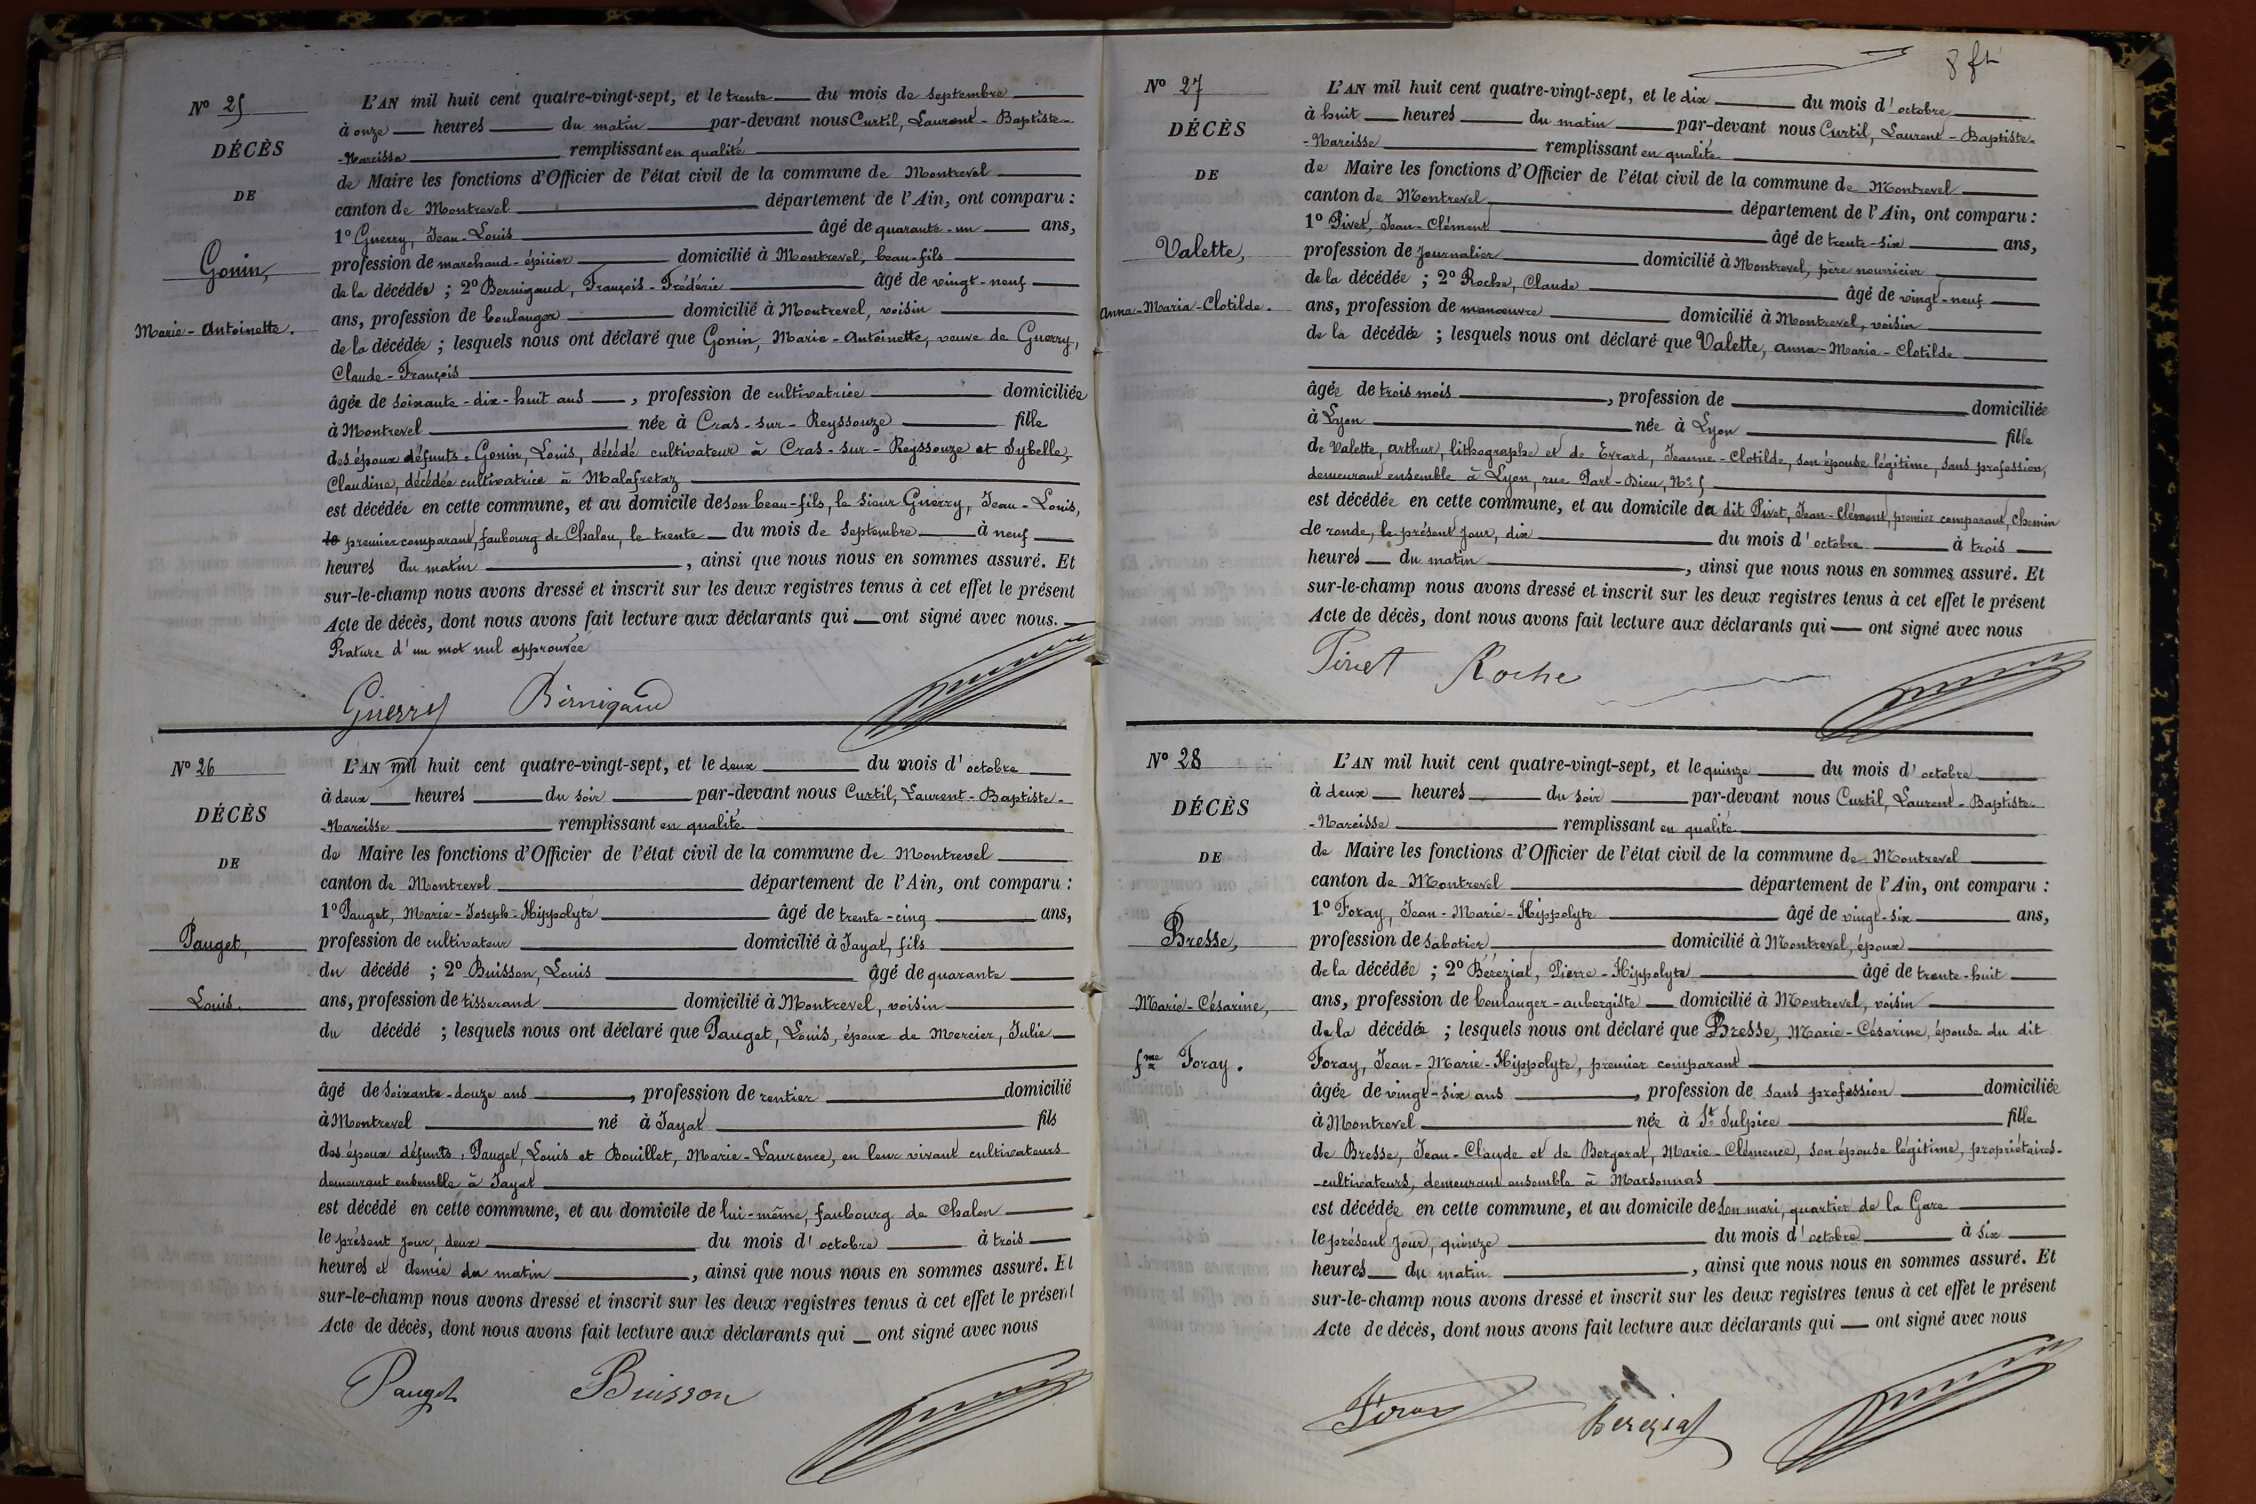 8 ft
N° 25
DÉCÈS
DE
Gonin,
Marie-Antoinette.
L'AN mil huit cent quatre-vingt-sept, et le trente du mois de septembre
à onze heures du matin par-devant nous Curtil, Laurent-Baptiste-
-Narcisse remplissant en qualité
de Maire les fonctions d'Officier de l'état civil de la commune de Montrevel
canton de Montrevel département de l'Ain, ont comparu :
1° Guerry, Jean-Louis âgé de quarante-un ans,
profession de marchand-épicier domicilié à Montrevel, beau-fils
de la décédée ; 2° Bernigaud, François-Frédéric âgé de vingt-neuf
ans, profession de boulanger domicilié à Montrevel, voisin
de la décédée ; lesquels nous ont déclaré que Gonin, Marie-Antoinette, veuve de Guerry,
Claude-François
âgée de soixante-dix-huit ans, profession de cultivatrice domiciliée
à Montrevel née à Cras-sur-Reyssouze fille
des époux défunts. Gonin, Louis, décédé cultivateur à Cras-sur-Reyssouze et Sybelle,
Claudine, décédée cultivatrice à Malafretaz
est décédée en cette commune, et au domicile de son beau-fils, le sieur Guerry, Jean-Louis,
le premier comparant, faubourg de Chalon, le trente du mois de septembre à neuf
heures du matin, ainsi que nous nous en sommes assuré. Et
sur-le-champ nous avons dressé et inscrit sur les deux registres tenus à cet effet le présent
Acte de décès, dont nous avons fait lecture aux déclarants qui ont signé avec nous.
Rature d'un mot nul approuvée
Guerry Bernigaud
N° 26
DÉCÈS
DE
Pauget,
Louis.
L'AN mil huit cent quatre-vingt-sept, et le deux du mois d'octobre
à deux heures du soir par-devant nous Curtil, Laurent-Baptiste-
-Narcisse remplissant en qualité
de Maire les fonctions d'Officier de l'état civil de la commune de Montrevel
canton de Montrevel département de l'Ain, ont comparu :
1° Pauget, Marie-Joseph-Hippolyte âgé de trente-cinq ans,
profession de cultivateur domicilié à Jayat, fils
du décédé ; 2° Buisson, Louis âgé de quarante
ans, profession de tisserand domicilié à Montrevel, voisin
du décédé ; lesquels nous ont déclaré que Pauget, Louis, époux de Mercier, Julie
âgé de soixante-douze ans, profession de rentier domicilié
à Montrevel né à Jayat fils
des époux défunts, Pauget, Louis et Bouillet, Marie-Laurence, en leur vivant cultivateurs
demeurant ensemble à Jayat
est décédé en cette commune, et au domicile de lui-même, faubourg de Chalon
le présent jour, deux du mois d'octobre à trois
heures et demie du matin, ainsi que nous nous en sommes assuré. Et
sur-le-champ nous avons dressé et inscrit sur les deux registres tenus à cet effet le présent
Acte de décès, dont nous avons fait lecture aux déclarants qui ont signé avec nous
Pauget Buisson
N° 27
DÉCÈS
DE
Valette,
Anna-Maria-Clotilde.
L'AN mil huit cent quatre-vingt-sept, et le dix du mois d'octobre
à huit heures du matin par-devant nous Curtil, Laurent-Baptiste-
-Narcisse remplissant en qualité
de Maire les fonctions d'Officier de l'état civil de la commune de Montrevel
canton de Montrevel département de l'Ain, ont comparu :
1° Pivet, Jean-Clément âgé de trente-six ans,
profession de journalier domicilié à Montrevel, père nourricier
de la décédée ; 2° Roche, Claude âgé de vingt-neuf
ans, profession de manoeuvre domicilié à Montrevel, voisin
de la décédée ; lesquels nous ont déclaré que Valette, Anna-Maria-Clotilde
âgée de trois mois, profession de domiciliée
à Lyon née à Lyon fille
de Valette, Arthur, lithographe et de Evrard, Jeanne-Clotilde, son épouse légitime, sans profession,
demeurant ensemble à Lyon, rue Part-Dieu, N° 5
est décédée en cette commune, et au domicile du dit Pivet, Jean-Clément, premier comparant, Chemin
de ronde, le présent jour, dix du mois d'octobre à trois
heures du matin, ainsi que nous nous en sommes assuré. Et
sur-le-champ nous avons dressé et inscrit sur les deux registres tenus à cet effet le présent
Acte de décès, dont nous avons fait lecture aux déclarants qui ont signé avec nous
Pivet Roche
N° 28
DÉCÈS
DE
Bresse,
Marie-Césarine,
fme Foray.
L'AN mil huit cent quatre-vingt-sept, et le quinze du mois d'octobre
à deux heures du soir par-devant nous Curtil, Laurent-Baptiste-
-Narcisse remplissant en qualité
de Maire les fonctions d'Officier de l'état civil de la commune de Montrevel
canton de Montrevel département de l'Ain, ont comparu :
1° Foray, Jean-Marie-Hippolyte âgé de vingt-six ans,
profession de sabotier domicilié à Montrevel, époux
de la décédée ; 2° Béréziat, Pierre-Hippolyte âgé de trente-huit
ans, profession de boulanger-aubergiste domicilié à Montrevel, voisin
de la décédée ; lesquels nous ont déclaré que Bresse, Marie-Césarine, épouse du dit
Foray, Jean-Marie-Hippolyte, premier comparant
âgée de vingt-six ans, profession de sans profession domiciliée
à Montrevel née à St Sulpice fille
de Bresse, Jean-Claude et de Bergerat, Marie-Clémence, son épouse légitime, propriétaires-
-cultivateurs, demeurant ensemble à Marsonnas
est décédée en cette commune, et au domicile de son mari, quartier de la Gare
le présent jour, quinze du mois d'octobre à six
heures du matin, ainsi que nous nous en sommes assuré. Et
sur-le-champ nous avons dressé et inscrit sur les deux registres tenus à cet effet le présent
Acte de décès, dont nous avons fait lecture aux déclarants qui ont signé avec nous
Foray Bereziat